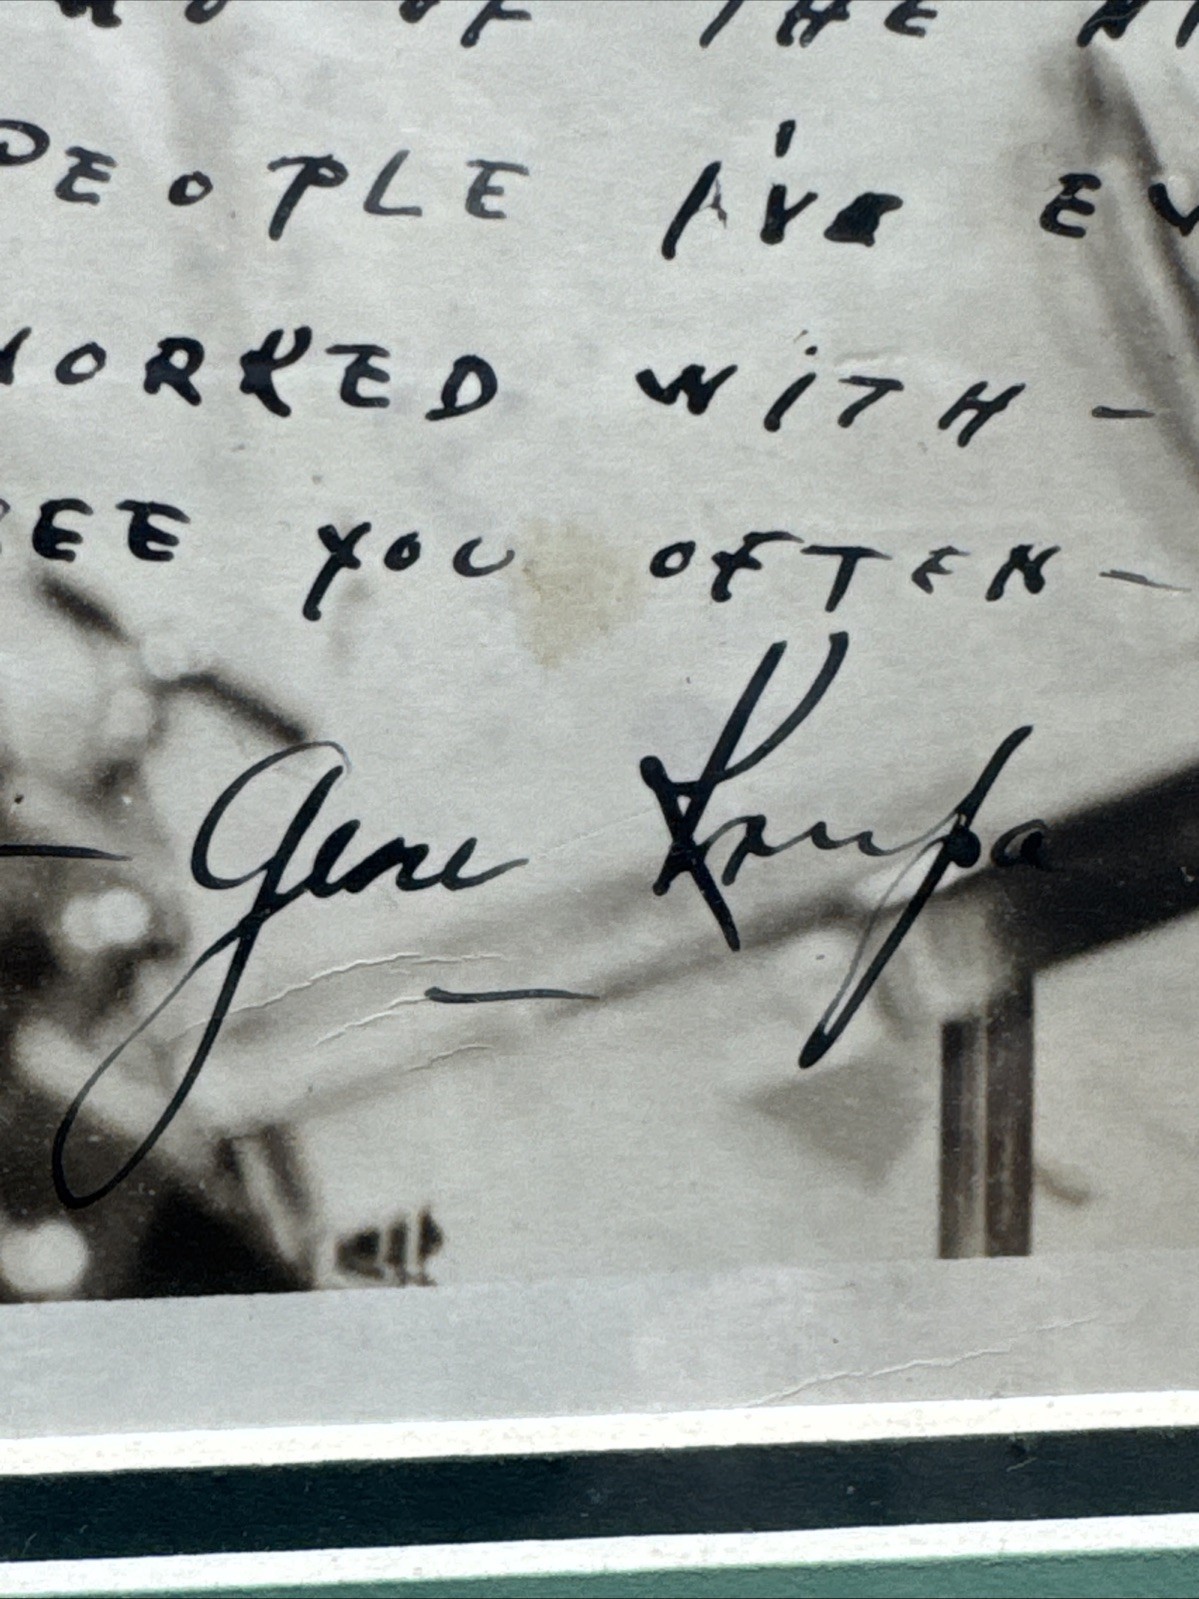 OF THE
PEOPLE I'VE EV
WORKED WITH -
SEE YOU OFTEN -
- Gene Krupa
-